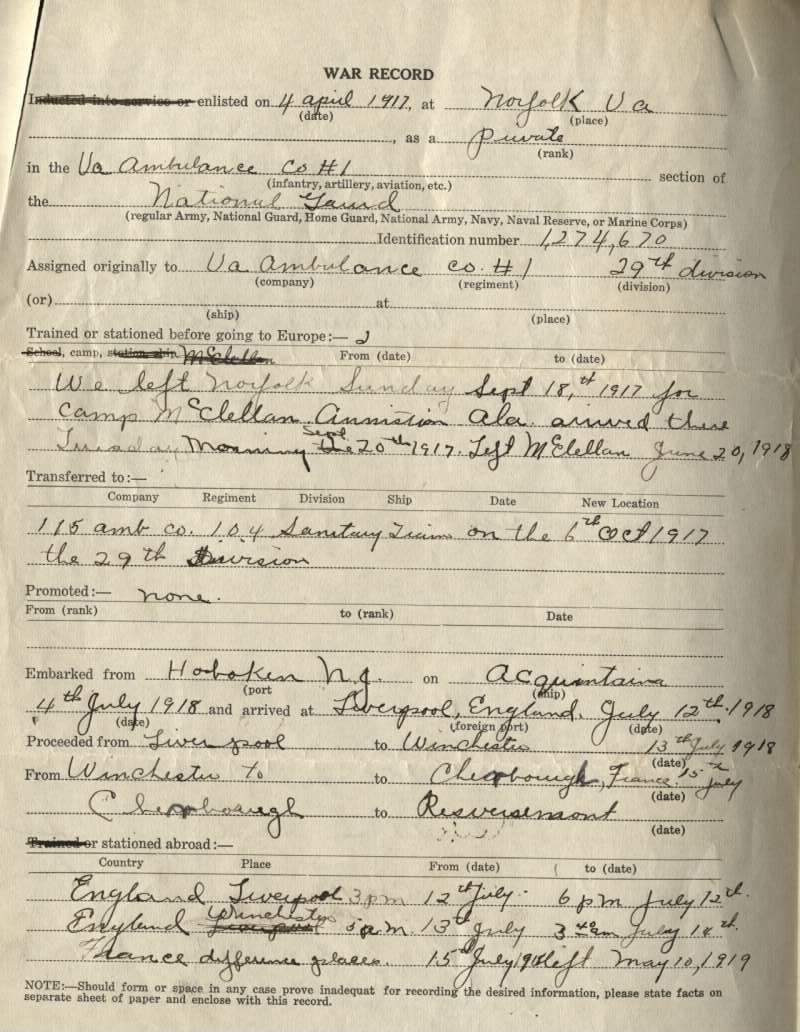 WAR RECORD
Inducted into service or enlisted on 4 april 1917, at Norfolk Va
(date) (place)
, as a private
(rank)
in the Va Ambulance Co #1 section of
(infantry, artillery, aviation, etc.)
the National Gaurd
(regular Army, National Guard, Home Guard, National Army, Navy, Naval Reserve, or Marine Corps)
Identification number 1,274,670
Assigned originally to Va Ambulance co. #1 29th division
(company) (regiment) (division)
(or) at
(ship) (place)
Trained or stationed before going to Europe:—
School, camp, station, ship McClellan From (date) to (date)
We left Norfolk Sunday Sept 18,th 1917 for
Camp McClellan Anniston Ala. arrived there
Tuesday Morning Sept 20th 1917. Left McClellan June 20, 1918
Transferred to:—
Company Regiment Division Ship Date New Location
115 amb co. 104 Sanitary Train on the 6th Oct 1917
the 29th Division
Promoted:— none.
From (rank) to (rank) Date
Embarked from Hoboken N.J. on Acquintaina
(port (ship)
4th July 1918 and arrived at Liverpool, England. July 12th. 1918
(date) (foreign port) (date)
Proceeded from Liverpool to Winchester 13th July 1918
(date)
From Winchester to to Cherbourgh, France. 15th July
(date)
to
(date)
Trained or stationed abroad:—
Country Place From (date) to (date)
England Liverpool 3 pm 12th July. 6 pm July 12th.
England Winchester Liverpool 5 a.m. 13th July 3 40 am July 14th.
France difference places. 15th July 1918 left May 10, 1919
NOTE:—Should form or space in any case prove inadequat for recording the desired information, please state facts on
separate sheet of paper and enclose with this record.